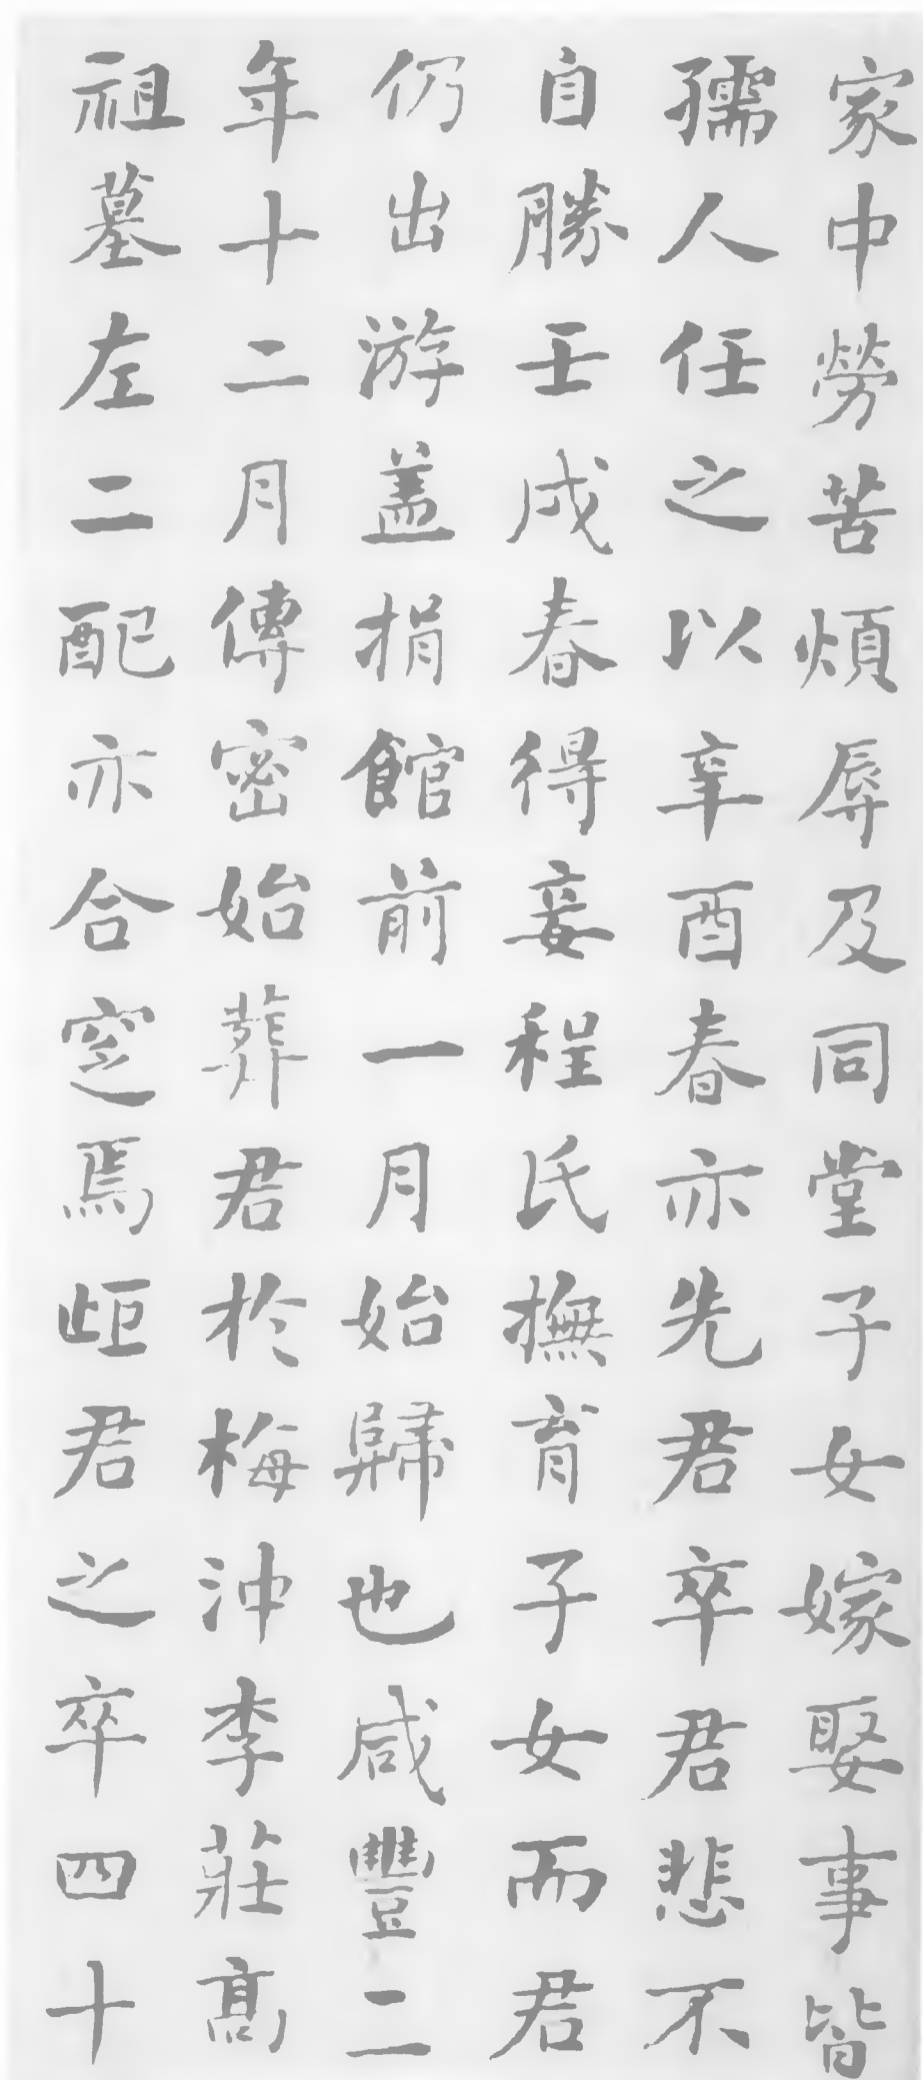 家中勞苦煩辱及同堂子女嫁娶事皆
孺人任之以辛酉春亦先君卒君悲不
自勝壬戌春得妾程氏撫育子女而君
仍出游盖捐館前一月始歸也咸豐二
年十二月傳密始葬君於梅沖李莊高
祖墓左二配亦合窆焉歫君之卒四十